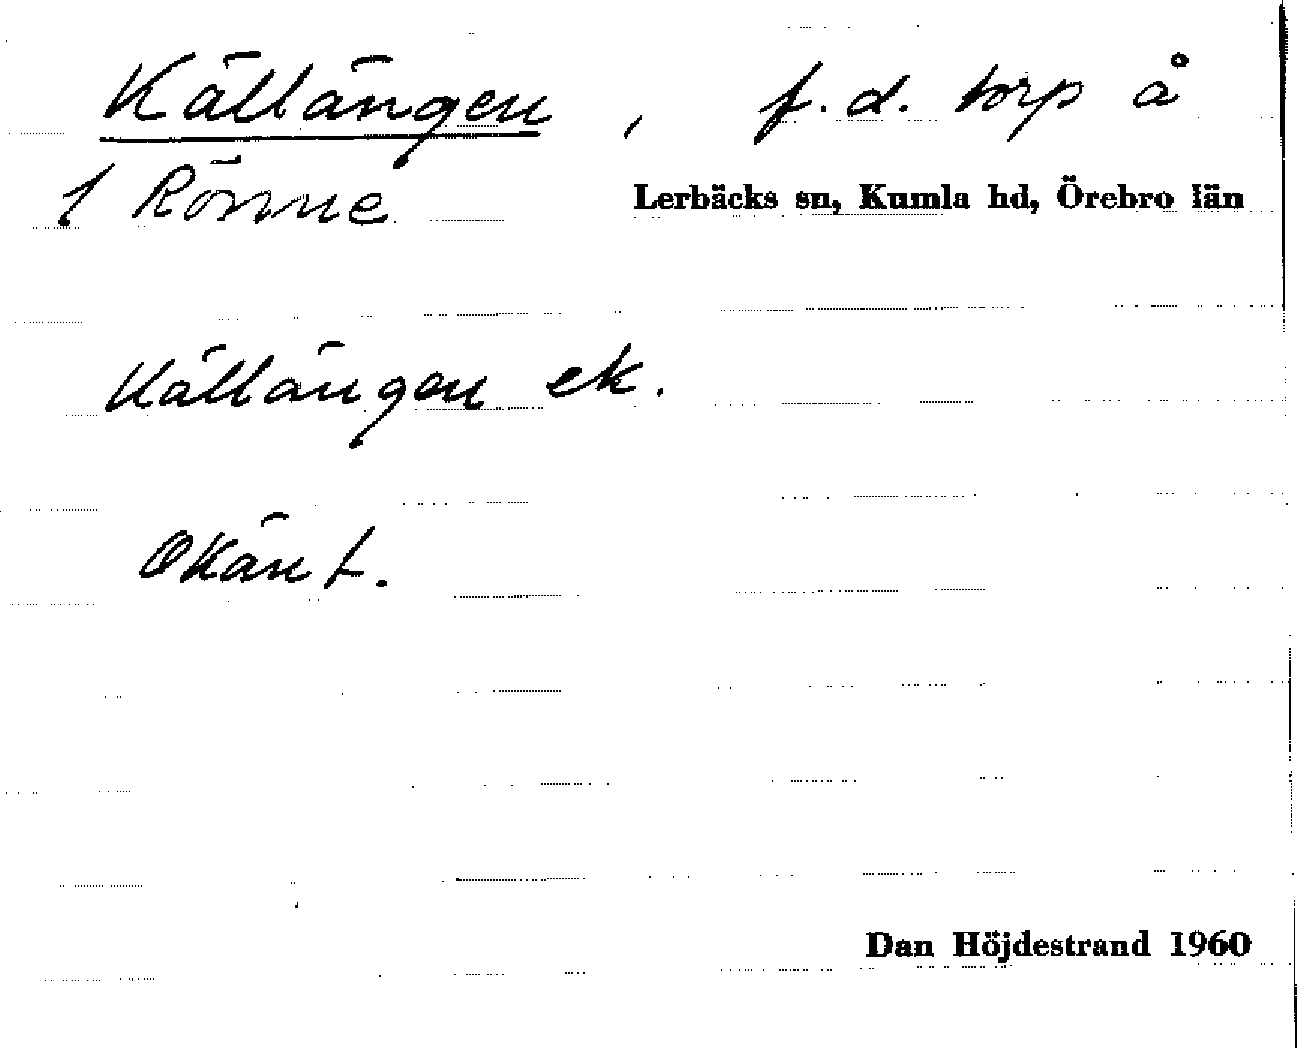 Källängen, f.d. torp å
1 Rönne Lerbäcks sn, Kumla hd, Örebro län
Källängen ek.
Okänt.
Dan Höjdestrand 1960